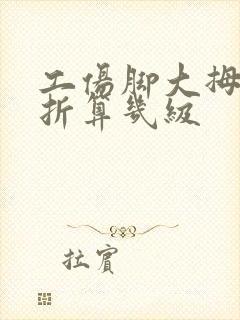 工傷脚大拇
折算幾級
拉賓